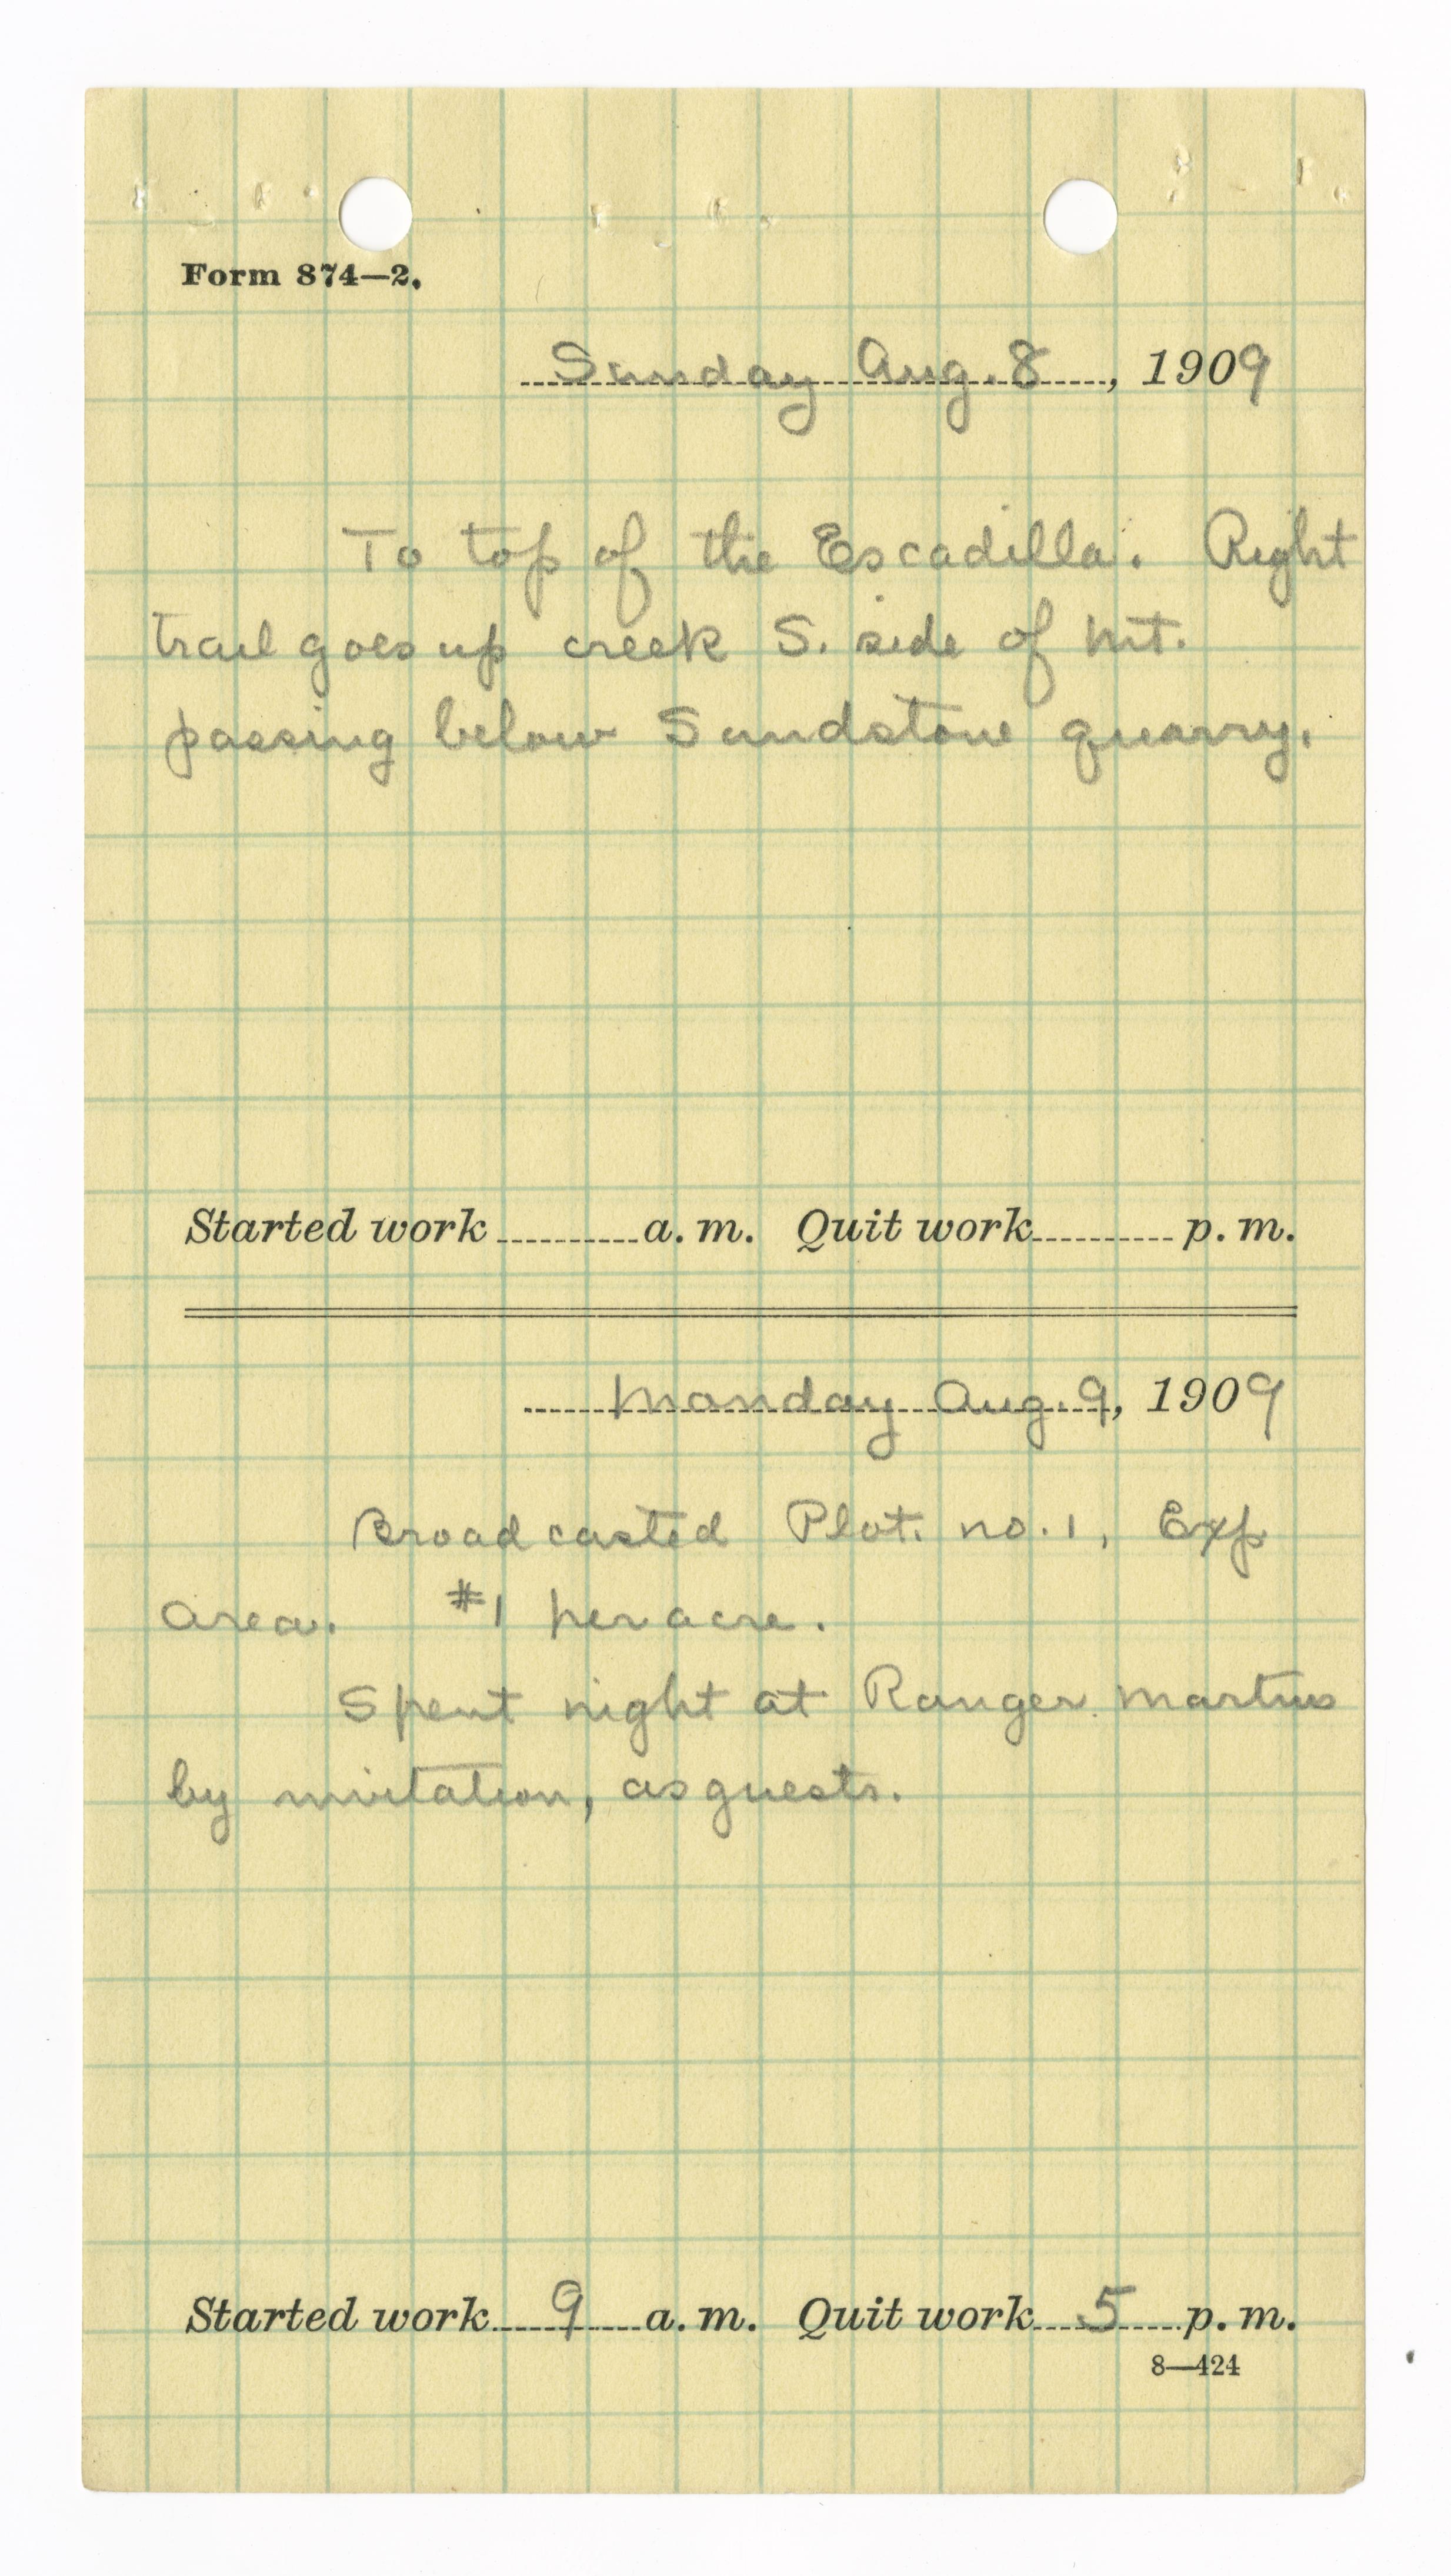 Form 874—2.
Sunday Aug. 8, 1909
To top of the Escadilla. Right
trail goes up creek S. side of Mt.
passing below Sandstone quarry.
Started work a. m. Quit work p. m.
Monday Aug. 9, 1909
Broadcasted Plot. no. 1, Exp
Area. #1 per acre.
Spent night at Ranger Martins
by invitation, as guests.
Started work 9 a. m. Quit work 5 p. m.
8—424